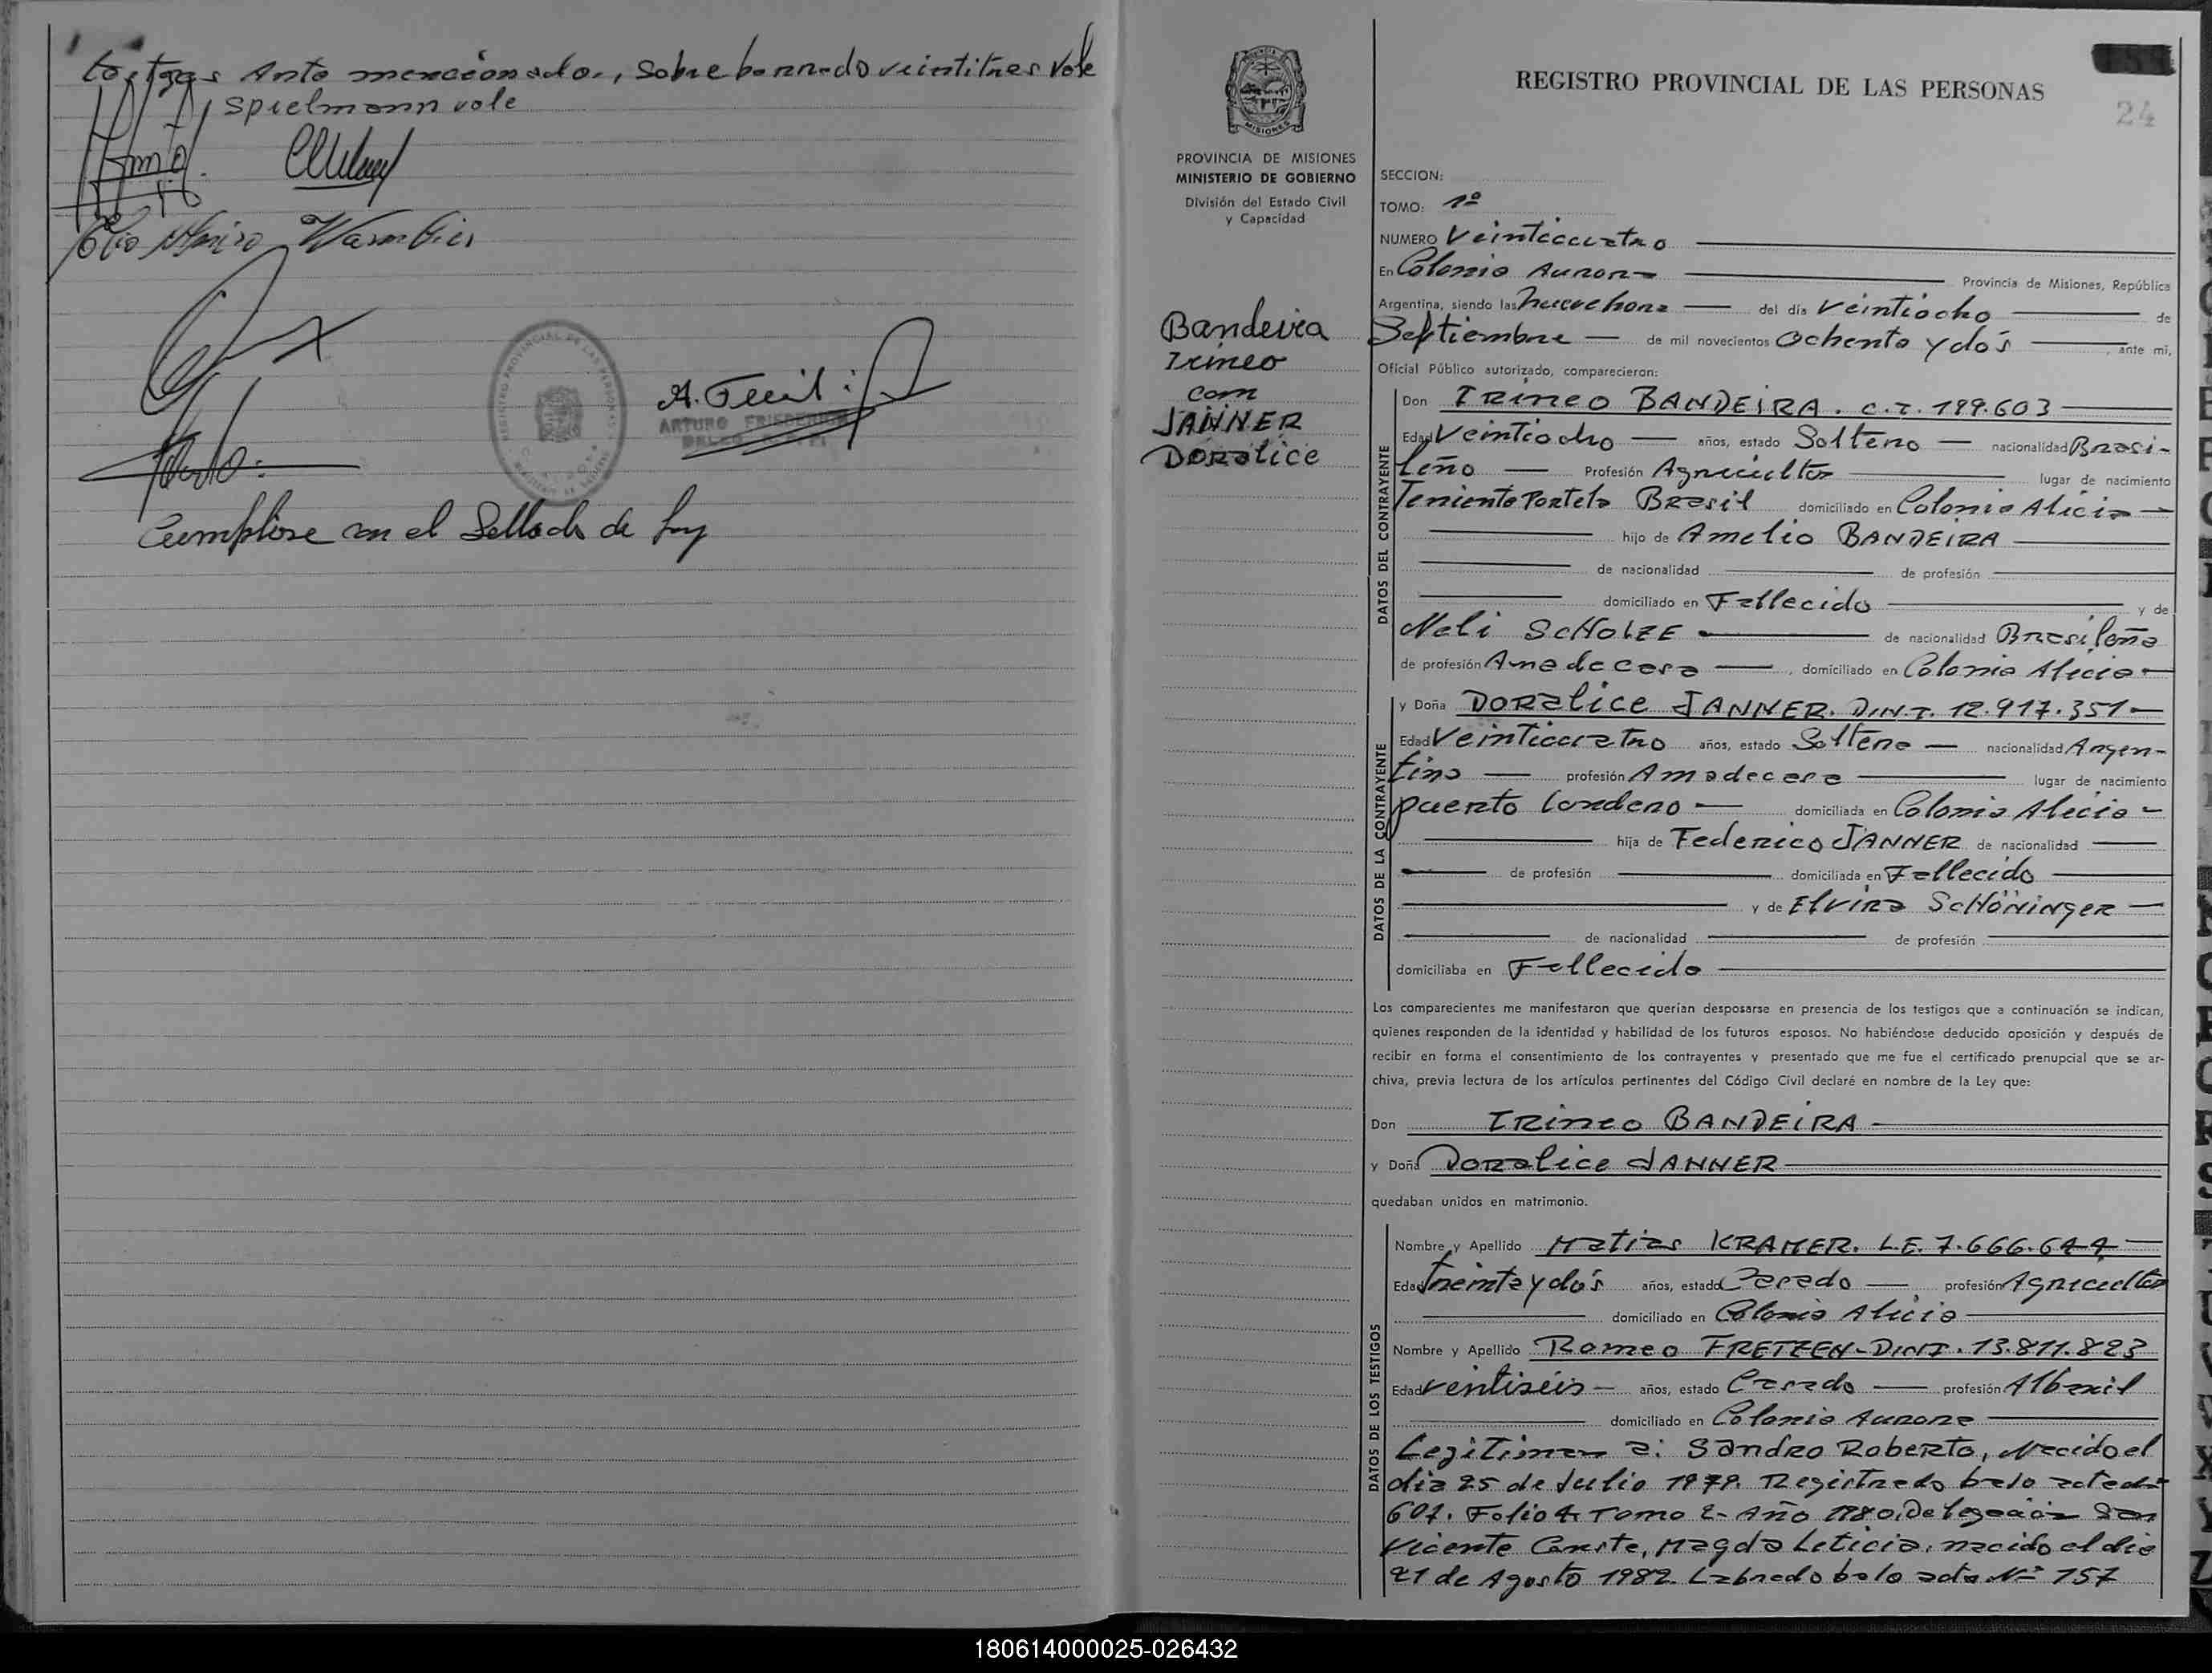 testigos Ante mencionado., Sobre borrado veintitres Vale
Spielmann vale
Warmbier
REGISTRO PROVINCIAL DE LAS PERSONAS
A. Friedl
ARTURO FRIEDERICH
Cumplióse con el Sellado de Ley
MISIONES
PROVINCIA DE MISIONES
MINISTERIO DE GOBIERNO
División del Estado Civil
y Capacidad
Bandeira
Irineo
com
JANNER
Doralice
REGISTRO PROVINCIAL DE LAS PERSONAS
24
SECCION:
TOMO: 1º
NUMERO Veinticuatro
En Colonia Aurora Provincia de Misiones, República
Argentina, siendo las nueve hora del día Veintiocho de
Septiembre de mil novecientos Ochenta y dos , ante mi,
Oficial Público autorizado, comparecieron:
DATOS DEL CONTRAYENTE
Don IRineo BANDEIRA. C.I. 199.603
Edad Veintiocho años, estado Soltero nacionalidad Brasi-
leño Profesión Agricultor lugar de nacimiento
Teniente Portela Brasil domiciliado en Colonia Alicia
hijo de Amelio BANDEIRA
de nacionalidad de profesión
domiciliado en Fallecido y de
Neli SCHOLZE de nacionalidad Brasileña
de profesión Ama de casa , domiciliado en Colonia Alicia
DATOS DE LA CONTRAYENTE
y Doña DORalice JANNER. D.N.I. 12.917.351
Edad Veinticuatro años, estado Soltera nacionalidad Argen-
tina profesión Ama de casa lugar de nacimiento
puerto Londero domiciliada en Colonia Alicia
hija de Federico JANNER de nacionalidad
de profesión domiciliada en Fallecido
y de Elvira SCHÖNINGER
de nacionalidad de profesión
domiciliaba en Fallecida
Los comparecientes me manifestaron que querían desposarse en presencia de los testigos que a continuación se indican,
quienes responden de la identidad y habilidad de los futuros esposos. No habiéndose deducido oposición y después de
recibir en forma el consentimiento de los contrayentes y presentado que me fue el certificado prenupcial que se ar-
chiva, previa lectura de los artículos pertinentes del Código Civil declaré en nombre de la Ley que:
Don IRineo BANDEIRA
y Doña DORalice JANNER
quedaban unidos en matrimonio.
DATOS DE LOS TESTIGOS
Nombre y Apellido Matias KRAMER. L.E. 7.666.644
Edad Treinta y dos años, estado Casado profesión Agricultor
domiciliado en Colonia Alicia
Nombre y Apellido Romeo FRETZEN-D.N.I. 13.811.823
Edad Ventiseis años, estado Casado profesión Albañil
domiciliado en Colonia Aurora
Legitiman a: Sandro Roberto, Nacido el
dia 25 de Julio 1979. Registrado bajo acta
607. Folio 4 Tomo 2- Año 1980, Delegación San
Vicente Conste, Magda Leticia, nacido el dia
21 de Agosto 1982. Labrado bajo acta Nº 157
180614000025-026432